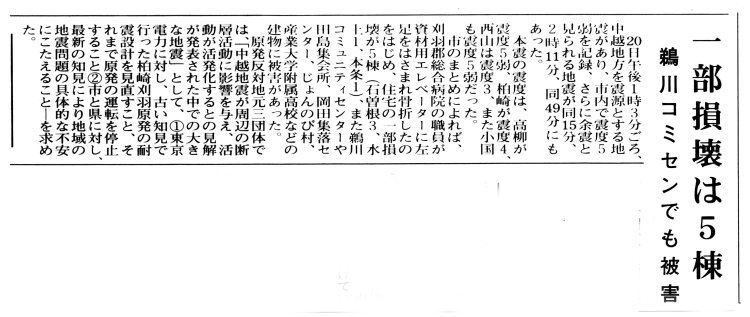 一部損壊は5棟
鵜川コミセンでも被害
20日午後1時3分ごろ、
中越地方を震源とする地
震があり、市内で震度5
弱を記録、さらに余震と
見られる地震が同15分、
2時11分、同49分にも
あった。
本震の震度は、高柳が
震度5弱、柏崎が震度4、
西山は震度3、また小国
も震度5弱だった。
市のまとめによれば、
刈羽郡総合病院の職員が
資材用エレベーターに左
足をはさまれ骨折したの
をはじめ、住宅の一部損
壊が5棟（石曽根3、水
上1、本条1）、また鵜川
コミュニティセンターや
田島集会所、岡田集落セ
ンター、じょんのび村、
産業大学附属高校などの
建物に被害があった。
原発反対地元三団体で
は「中越地震が周辺の断
層活動に影響を与え、活
動が活発化するとの見解
が発表された中での大き
な地震」として、①東京
電力に対し、古い知見で
行った柏崎刈羽原発の耐
震設計を見直すこと、そ
れまで原発の運転を停止
すること②市と県に対し、
最新の知見により地域の
地震問題の具体的な不安
にこたえること―を求め
た。